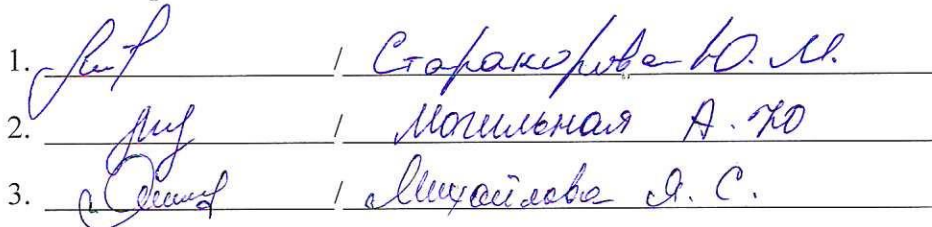 1. / Старакорова Ю. М.
2. / Могильная А. Ю
3. / Михайлова Я. С.